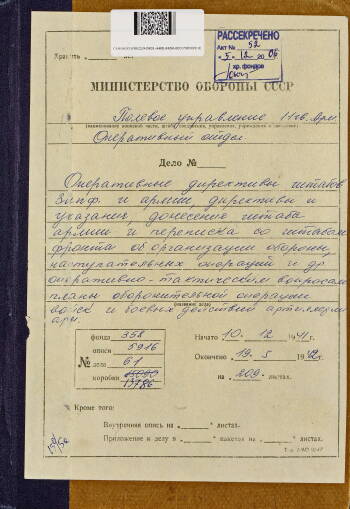 РАССЕКРЕЧЕНО
Акт № 52
"5" 12 2006
хр. фондов
Хранить
МИНИСТЕРСТВО ОБОРОНЫ СССР
Полевое управление 11 гв. Арм.
Оперативный отдел.
Дело №
Оперативные директивы штабов
Зап.ф. и армии, директивы и
указания, донесения штаба
армии и переписка со штабом
фронта об организации обороны,
наступательных операций и др.
оперативно-тактическим вопросам
планы оборонительной операции
войск и боевых действий артиллерии
арм.
фонда 358
описи 5916
№ дела 61
коробки 13786
Начато 10. 12 1941г.
Окончено 19. 5 1942г.
на 209. листах.
Кроме того:
Внутренняя опись на листах.
Приложение к делу в пакетах на листах.